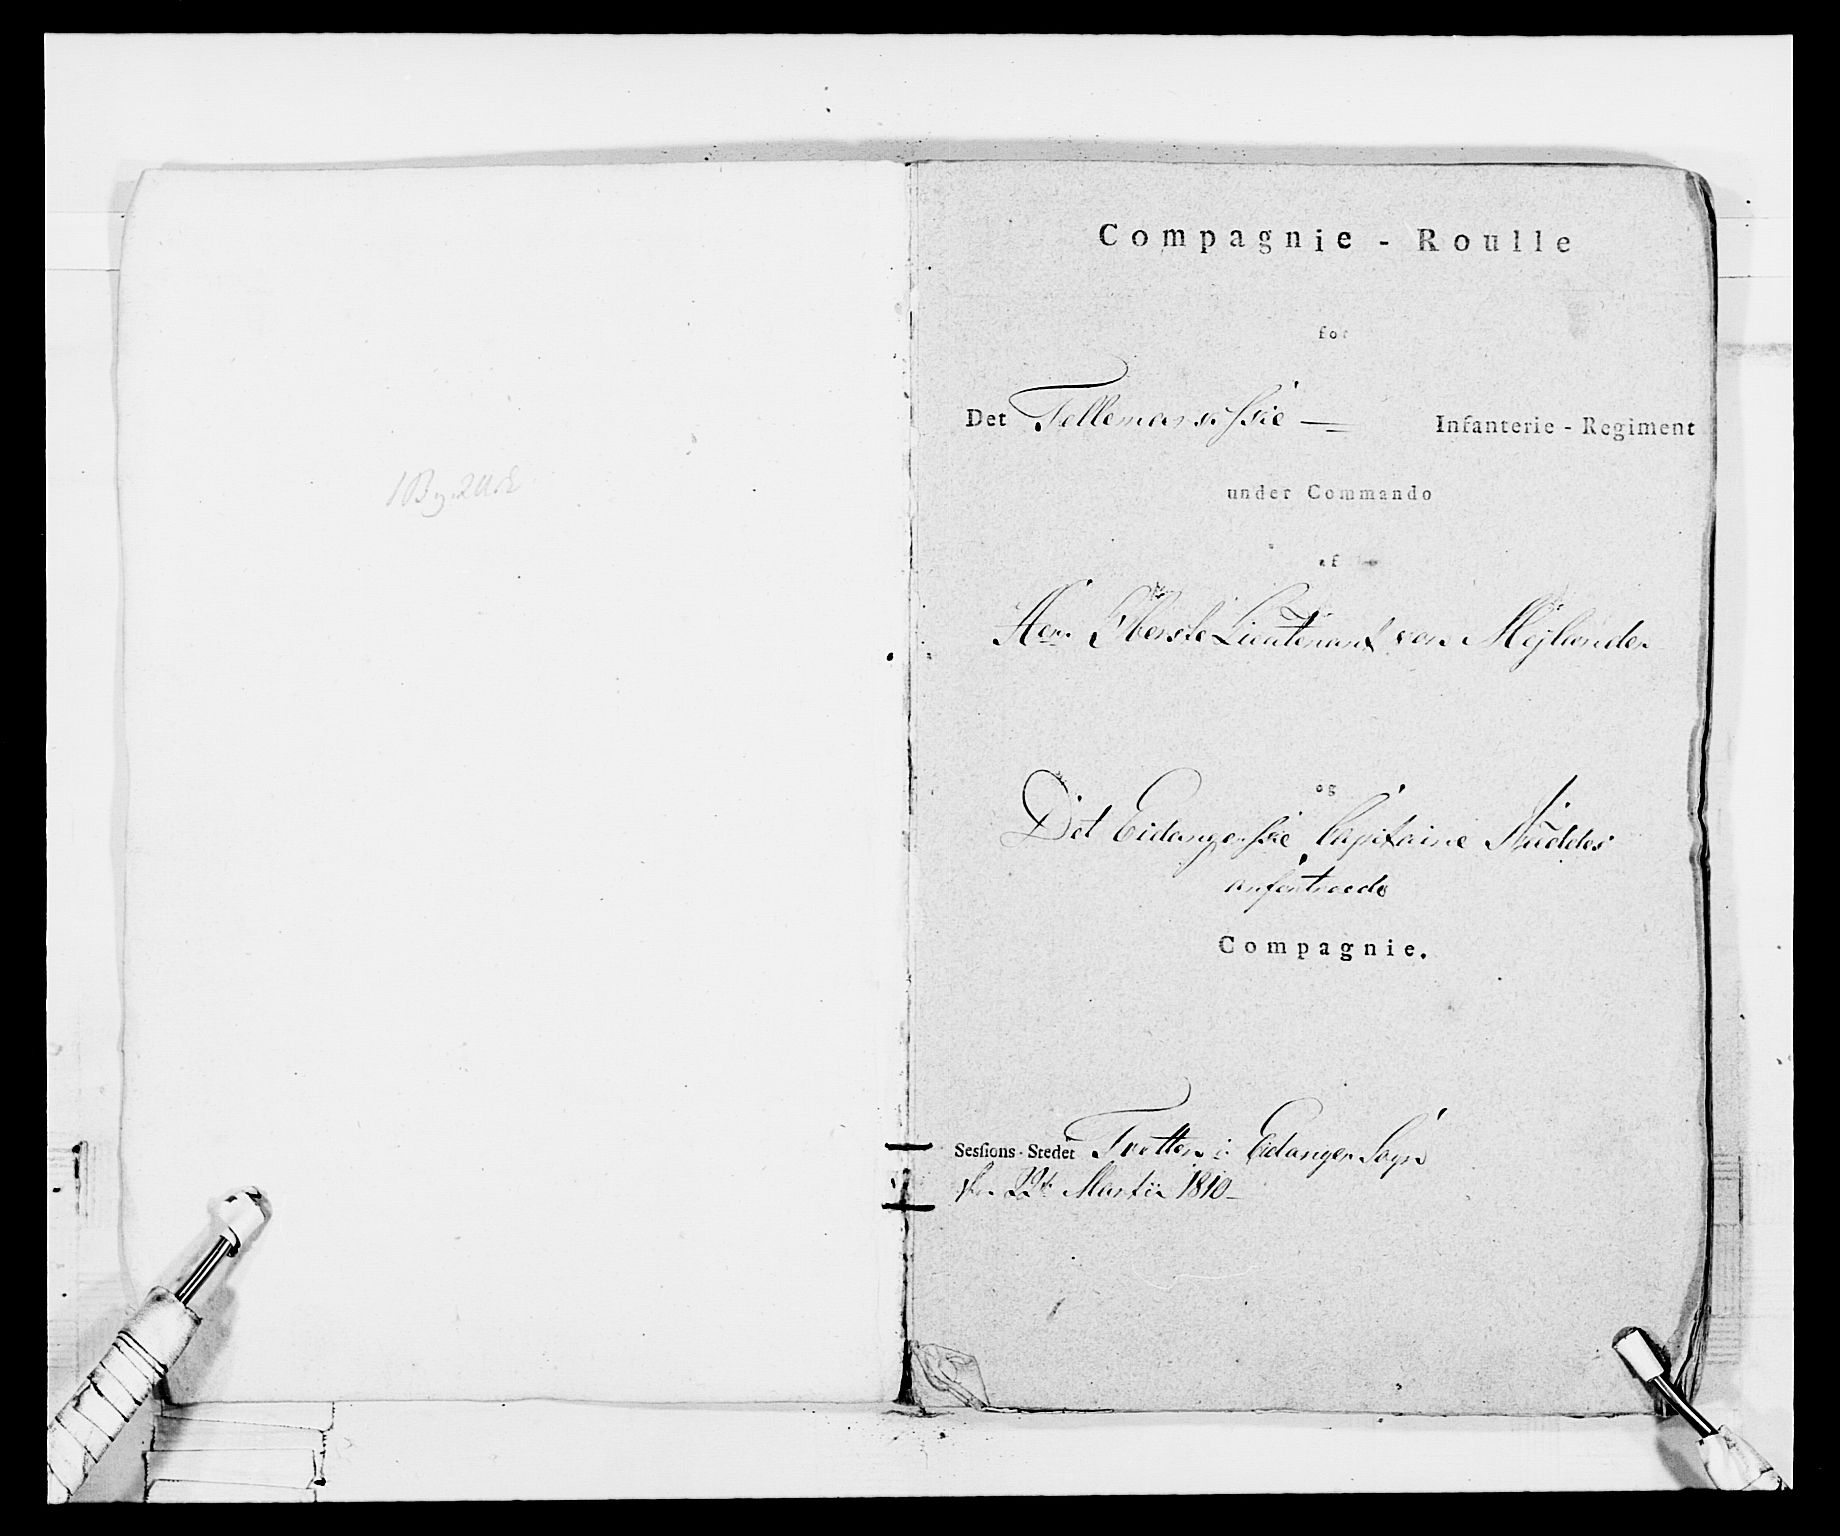 Compagnie - Roulle
for
Det Tellemarkske Infanterie - Regiment
under Commando
af
Herr Oberste Lieutenant von Mejlænder
og
Det Eidangerske Capitaine
anfortroede
Compagnie.
Sessions-Stedet Tvetten i Eidanger Sogn
22 Martii 1810